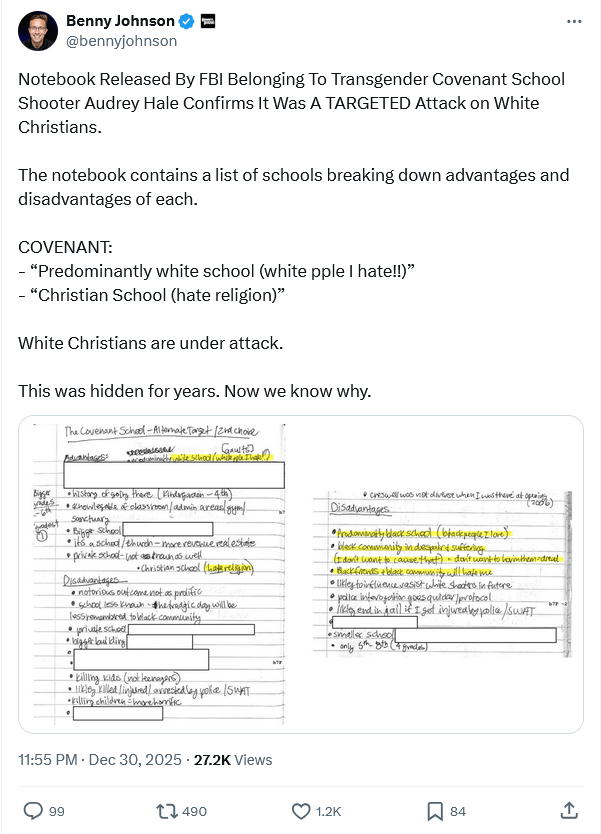 Benny Johnson
@bennyjohnson
Notebook Released By FBI Belonging To Transgender Covenant School
Shooter Audrey Hale Confirms It Was A TARGETED Attack on White
Christians.
The notebook contains a list of schools breaking down advantages and
disadvantages of each.
COVENANT:
- “Predominantly white school (white pple I hate!!)”
- “Christian School (hate religion)”
White Christians are under attack.
This was hidden for years. Now we know why.
The Covenant School - Alternate Target / 2nd choice
Advantages:
white school (white pple I hate!!)
• history of going there (Kindergarten - 4th)
• knowledgable of classroom/admin areas/gym/
sanctuary
• Bigger School
• it's a school/church - more revenue real estate
• private school - not as known as well
• Christian school (hate religion)
Disadvantages
• notorious outcome not as prolific
• school less known - tragic day will be
less remembered to black community
• private school
• bigger building
• killing kids (not teenagers)
• likley killed/injured/arrested by police/SWAT
• killing children = more horrific
• Creswell was not diverse when I was there at opening
(2006)
Disadvantages
• Predominatly black school (black people I love)
• black community in despair & suffering
(I don't want to cause that) - don't want to harm them - dread
• Black friends & black community will hate me
• likley to influence racist white shooters in future
• police interrogation goes quicker/protocol
• likley end in jail if I get injured by police/SWAT
• smaller school
• only 5th - 8th (4 grades)
11:55 PM · Dec 30, 2025 · 27.2K Views
99
490
1.2K
84